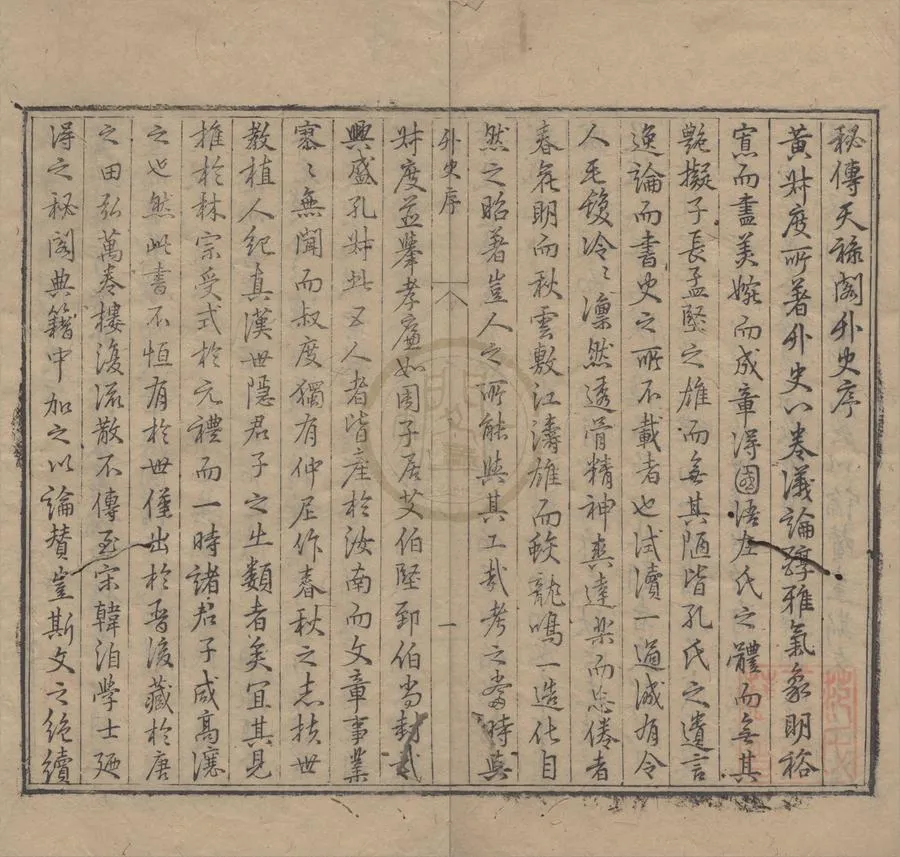 秘傳天祿閣外史序
黃叔度所著外史八卷議論醇雅氣象明裕
寬而盡美婉而成章得國語左氏之體而無其
艷擬子長孟堅之雄而無其陋皆孔氏之遺言
逸論而書史之所不載者也試讀一過誠有令
人毛髮冷〻凜然透骨精神爽達樂而忘倦者
春花明而秋雲敷江濤雄而蛟龍鳴一造化自
然之昭著豈人之所能與其工哉考之當時與
外史序
一
叔度並舉孝廉如周子居艾伯堅郅伯尚封武
興盛孔叔此五人者皆產於汝南而文章事業
寥〻無聞而叔度獨有仲尼作春秋之志扶世
教植人紀真漢世隱君子之出類者矣宜其見
推於林宗受式於元禮而一時諸君子咸高讓
之也然此書不恒有於世僅出於晉後藏於唐
之田弘萬卷樓復流散不傳至宋韓洎學士廼
得之秘閣典籍中加之以論贊豈斯文之絕續